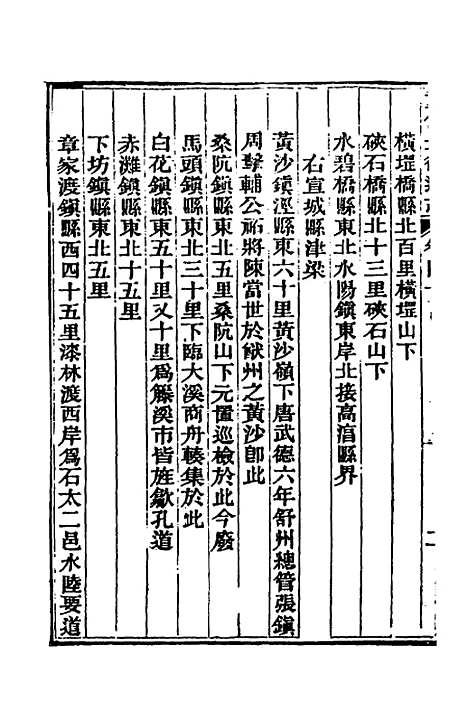 橫壋橋縣北百里橫壋山下
硤石橋縣北十三里硤石山下
水碧橋縣東北水陽鎮東岸北接高淳縣界
右宣城縣津梁
黃沙鎮涇縣東六十里黃沙嶺下唐武德六年舒州總管張鎮
周擊輔公祏將陳當世於猷州之黃沙卽此
桑阬鎮縣東北五里桑阬山下元置巡檢於此今廢
馬頭鎮縣東北三十里下臨大溪商舟輳集於此
白花鎮縣東五十里又十里爲籐溪市皆旌歙孔道
赤灘鎮縣東北十五里
下坊鎮縣東北五里
章家渡鎮縣西四十五里漆林渡西岸爲石太二邑水陸要道